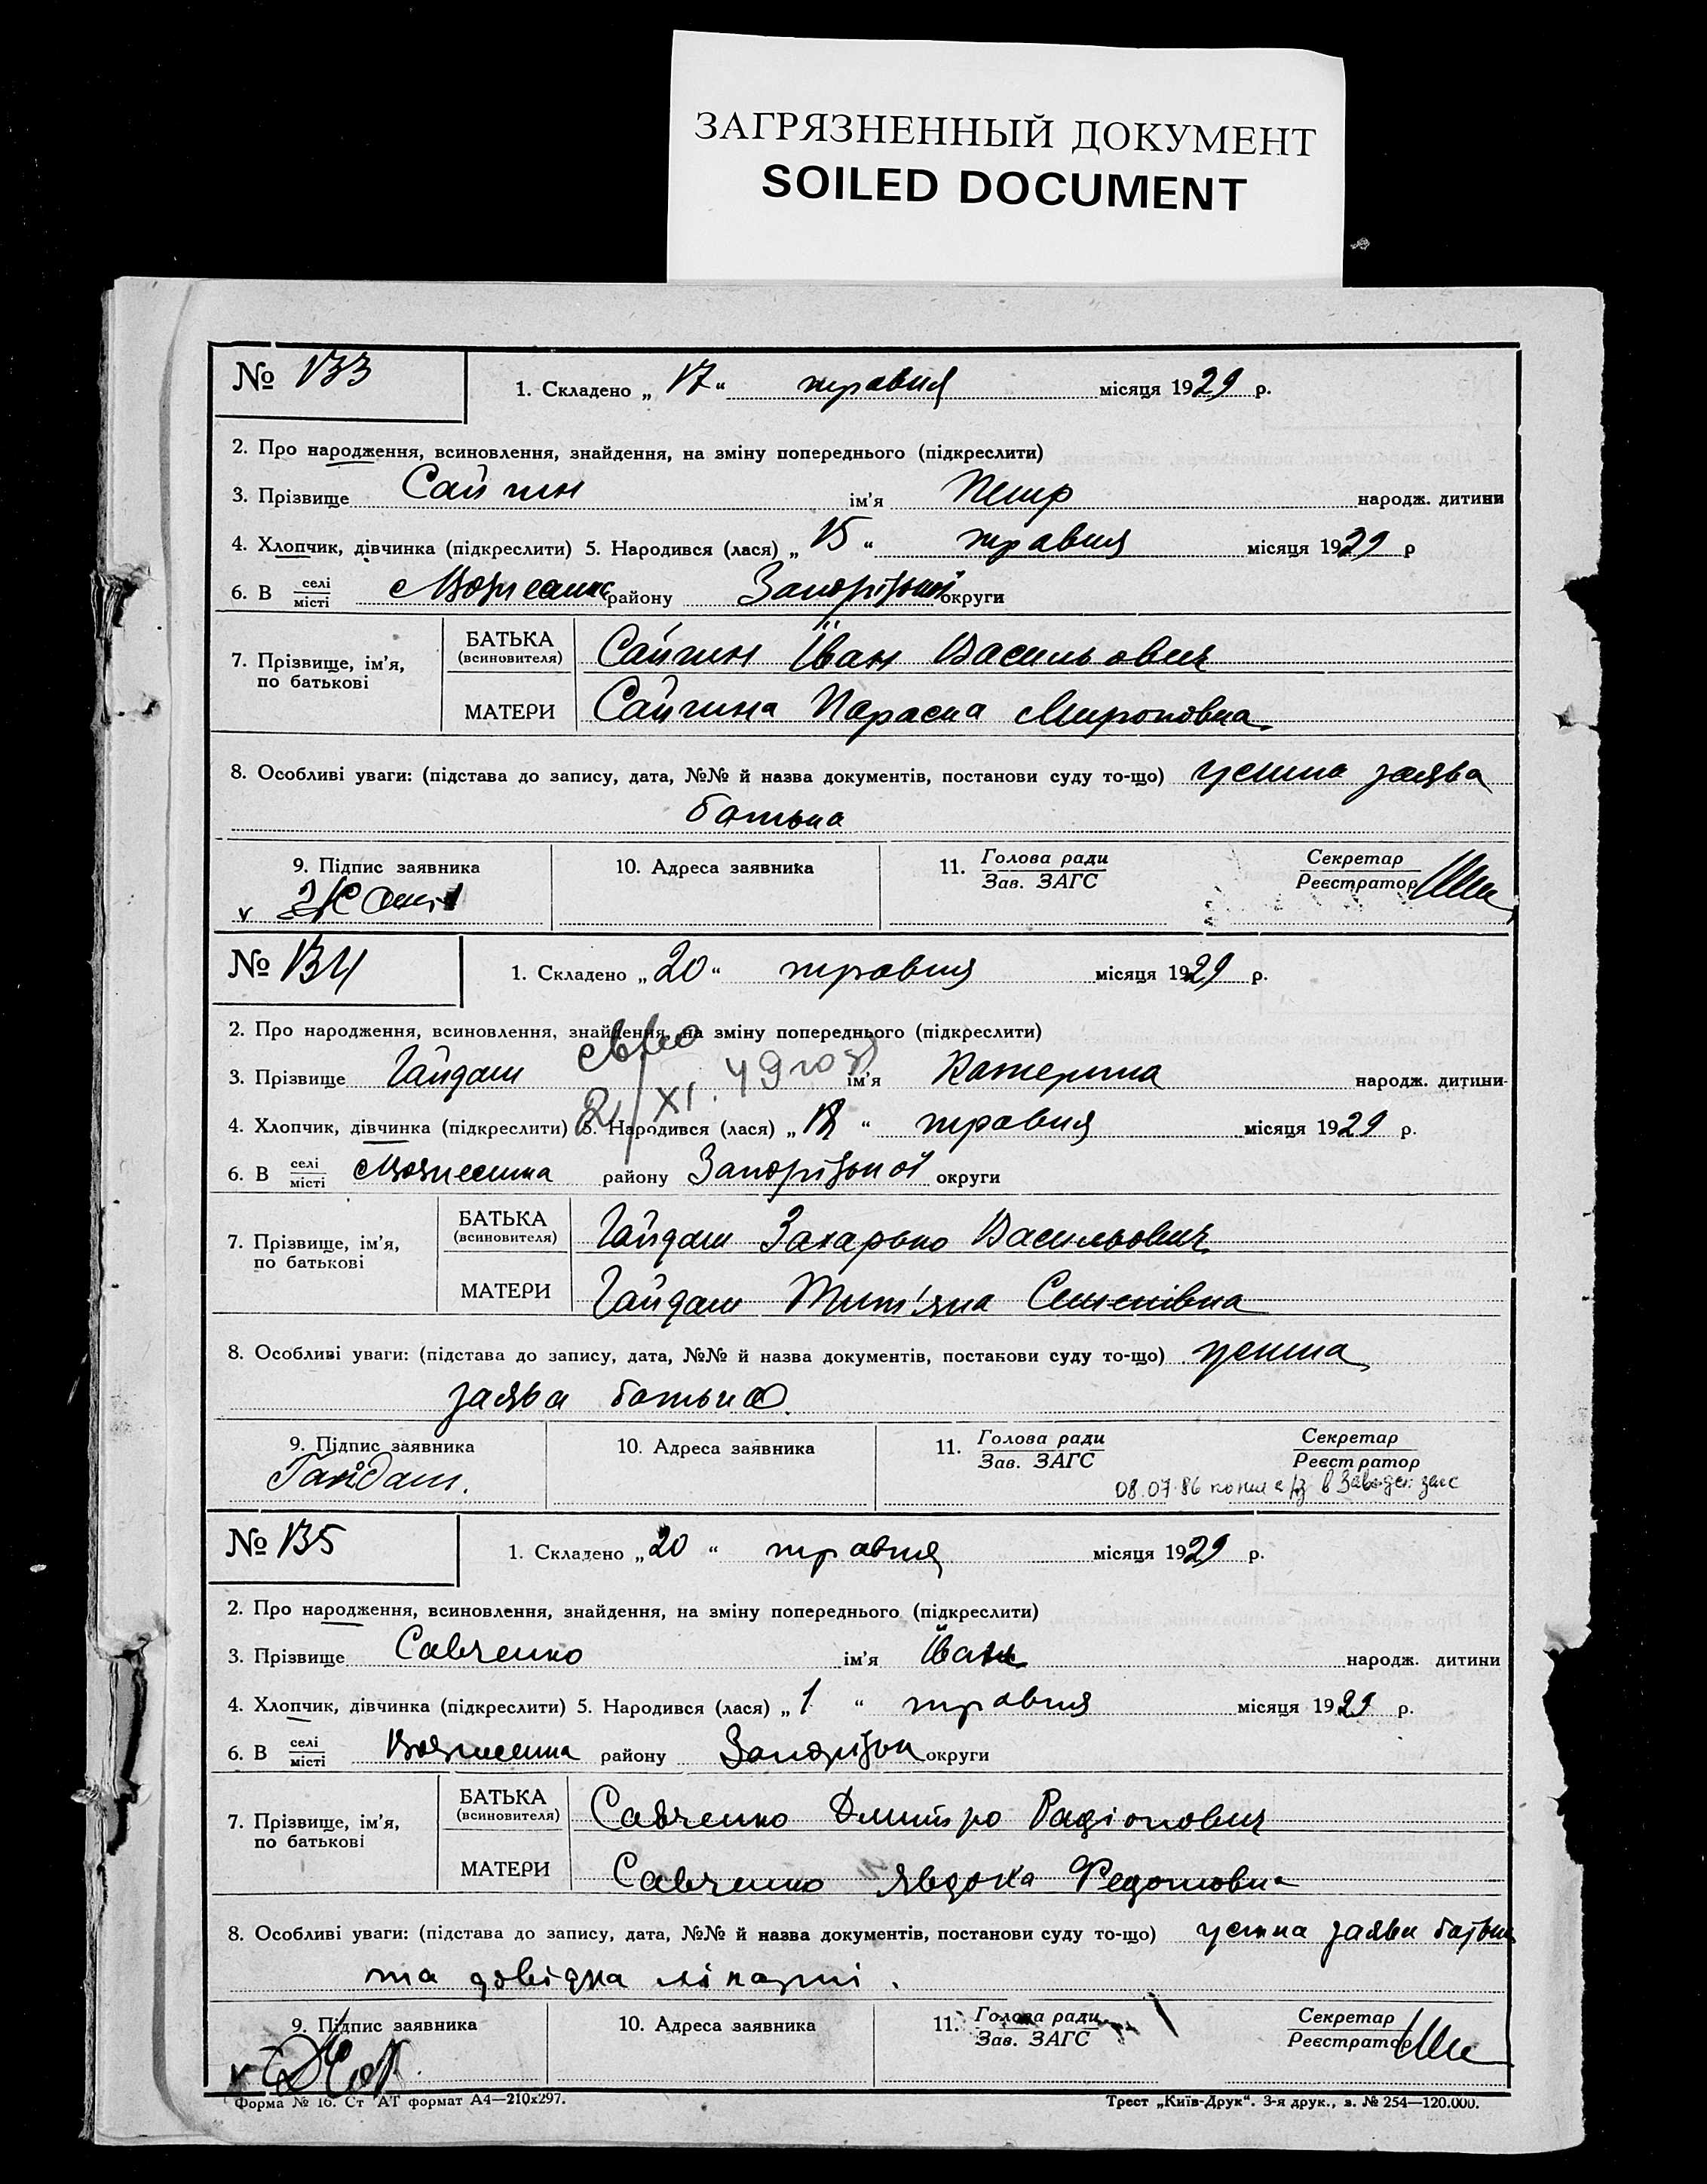 ЗАГРЯЗНЕННЫЙ ДОКУМЕНТ
SOILED DOCUMENT
№ 133
1. Складено „ 17 “ травня місяця 1929 р.
2. Про народження, всиновлення, знайдення, на зміну попереднього (підкреслити)
3. Прізвище Сайгин ім’я Петр народж. дитини
4. Хлопчик, дівчинка (підкреслити) 5. Народився (лася) „ 15 “ травня місяця 1929 р
6. В селі місті району Запорізької округи
7. Прізвище, ім’я, по батькові
БАТЬКА (всиновителя) Сайгин Іван Васильович
МАТЕРИ Сайгина Параска Мироновна
8. Особливі уваги: (підстава до запису, дата, №№ й назва документів, постанови суду то-що) устна заява
батька
9. Підпис заявника 10. Адреса заявника 11. Голова ради Зав. ЗАГС Секретар Реєстратор
№ 134
1. Складено „ 20 “ травня місяця 1929 р.
2. Про народження, всиновлення, знайдення, на зміну попереднього (підкреслити)
3. Прізвище Гайдаш ім’я Катерина народж. дитини
4. Хлопчик, дівчинка (підкреслити) 5. Народився (лася) „ “ травня місяця 1929 р.
6. В селі місті Вознесенка району Запорізької округи
7. Прізвище, ім’я, по батькові
БАТЬКА (всиновителя) Гайдаш Захарько Васильович
МАТЕРИ Гайдаш Тит'яна Семенівна
8. Особливі уваги: (підстава до запису, дата, №№ й назва документів, постанови суду то-що) устна
заява батька
9. Підпис заявника 10. Адреса заявника 11. Голова ради Зав. ЗАГС Секретар Реєстратор
Гайдаш.
08.07.86
№ 135
1. Складено „ 20 “ травня місяця 1929 р.
2. Про народження, всиновлення, знайдення, на зміну попереднього (підкреслити)
3. Прізвище Савченко ім’я Іван народж. дитини
4. Хлопчик, дівчинка (підкреслити) 5. Народився (лася) „ 1 “ травня місяця 1929 р.
6. В селі місті Вознесенка району Запорізьк округи
7. Прізвище, ім’я, по батькові
БАТЬКА (всиновителя) Савченко Дмитро Радіонович
МАТЕРИ Савченко Явдоха Федотовна
8. Особливі уваги: (підстава до запису, дата, №№ й назва документів, постанови суду то-що) устна заява батька
та довідка лікарні.
9. Підпис заявника 10. Адреса заявника 11. Голова ради Зав. ЗАГС Секретар Реєстратор
Форма № 16. Ст АТ формат А4—210х297.
Трест „Київ-Друк“. 3-я друк., з. № 254—120.000.